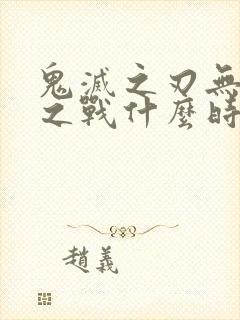 鬼滅之刃無
之戰什麼時
趙義